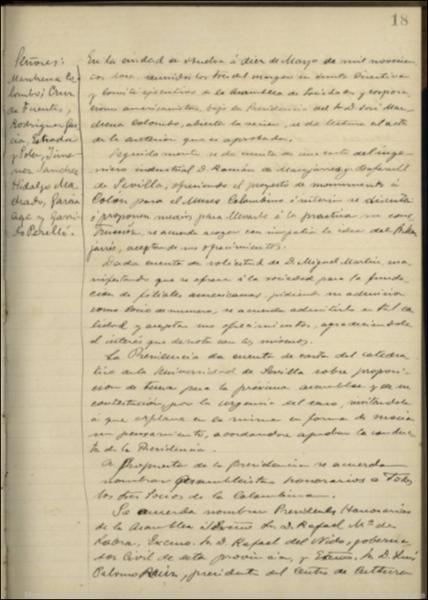 18
Señores:
Marchena Co-
lombo; Cruz
de Fuentes,
Rodríguez Gar-
cía, Estrada
y Soler, Jime-
nez, Sánchez
Hidalgo, Ma-
chado, Garcia
Agé y Garri-
do Perelló.
En la ciudad de Huelva á diez de Mayo de mil novecien-
tos doce, reunidos los Sres. del margen en Junta Directiva
y Comité ejecutivo de la Asamblea de Sociedades y corpora-
ciones americanistas, bajo la Presidencia del Sr. D. José Mar-
chena Colombo, abierta la sesión, se da lectura al acta
de la anterior que es aprobada.
Seguidamente se da cuenta de una carta del inge-
niero industrial D. Ramón de Manjarrés y
de Sevilla, ofreciendo el proyecto de monumento á
Colón para el Museo Colombino é interin se discuta
ó proponen medios para llevarlo á la practica su cons-
trucción, se acuerda acoger con simpatía la idea del
jarrés, aceptando sus ofrecimientos.
Dada cuenta de solicitud de D. Miguel Martín, ma-
nifestando que se ofrece á la sociedad para la funda-
ción de filiales americanas, pidiendo su admisión
como Socio de numero, se acuerda admitirlo en tal ca-
lidad y aceptar sus ofrecimientos, agradeciéndole
el interés que demota con los mismos.
La Presidencia da cuenta de carta del catedra-
tico de la Universidad de Sevilla sobre proposi-
ción de tema para la próxima asamblea y de su
contestación, por la urgencia del caso, invitándole
á que explane en la misma en forma de moción
su pensamiento, acordandose aprobar la conduc-
ta de la Presidencia.
A propuesta de la Presidencia se acuerda
nombrar Asambleistas honorarios á Todos
los Sres. Socios de la Colombina.
Se acuerda nombrar Presidentes Honorarios
de la Asamblea al Excmo. Sr. D. Rafael Mª de
Labra, Excmo. Sr. D. Rafael del Nido, goberna-
dor Civil de esta provincia, y Excmo. Sr. D. Luis
Palomo Ruiz, presidente del Centro de Cultura